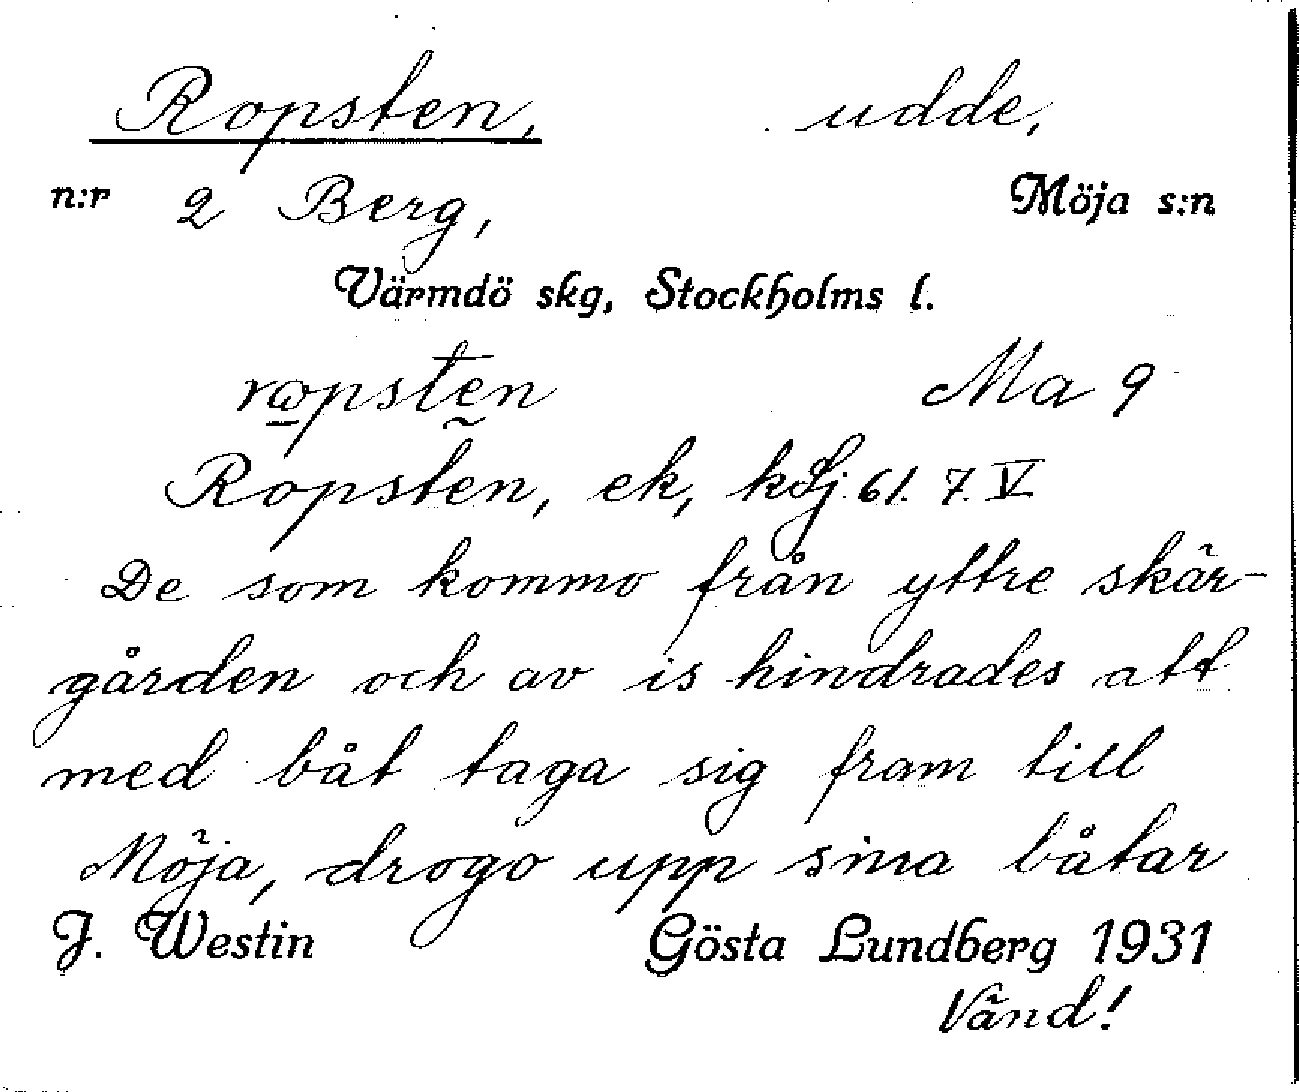 Ropsten, udde,
n:r 2 Berg, Möja s:n
Värmdö skg, Stockholms l.
ropsten Ma 9
Ropsten, ek, k Lj. 61. 7. V
De som kommo från yttre skär-
gården och av is hindrades att
med båt taga sig fram till
Möja, drogo upp sina båtar
J. Westin Gösta Lundberg 1931
Vänd!